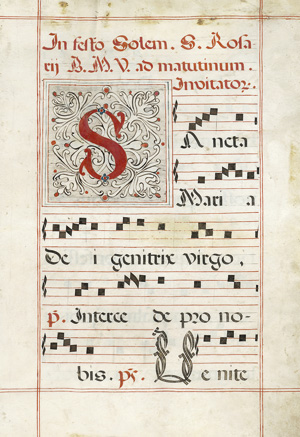 In festo Solem. S. Rosa
rij B. M. V. ad matutinum.
Invitator.
Sancta
Maria
De i genitrix virgo,
p. Interce de pro no-
bis. ps. Ve nite